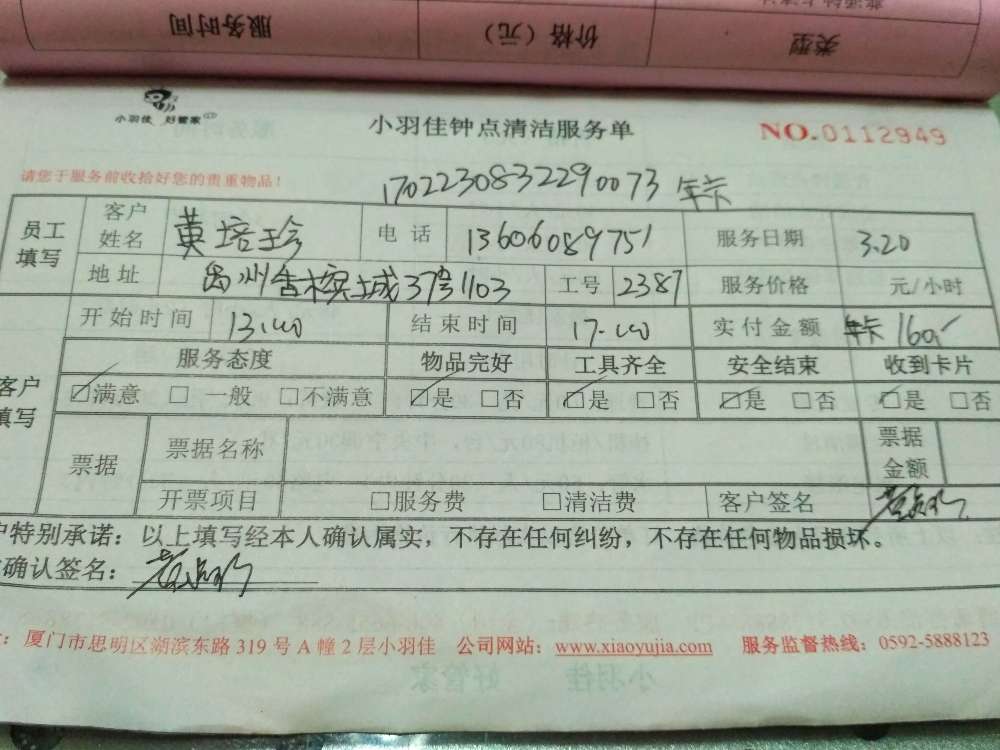 服务时间 价格（元） 类型
小羽佳 好管家
小羽佳钟点清洁服务单 NO.0112949
请您于服务前收拾好您的贵重物品！
17022308322290073 年卡
员工填写 客户姓名 黄培珍 电话 13606089751 服务日期 3.20
地址 禹州香槟城37号1103 工号 2387 服务价格 元/小时
开始时间 13:00 结束时间 17:00 实付金额 年卡160/
客户填写 服务态度 物品完好 工具齐全 安全结束 收到卡片
☑满意 □一般 □不满意 ☑是 □否 ☑是 □否 ☑是 □否 ☑是 □否
票据 票据名称 票据金额
开票项目 □服务费 □清洁费 客户签名
户特别承诺：以上填写经本人确认属实，不存在任何纠纷，不存在任何物品损坏。
确认签名：
：厦门市思明区湖滨东路319号A幢2层小羽佳 公司网站：www.xiaoyujia.com 服务监督热线：0592-5888123
小羽佳 好管家